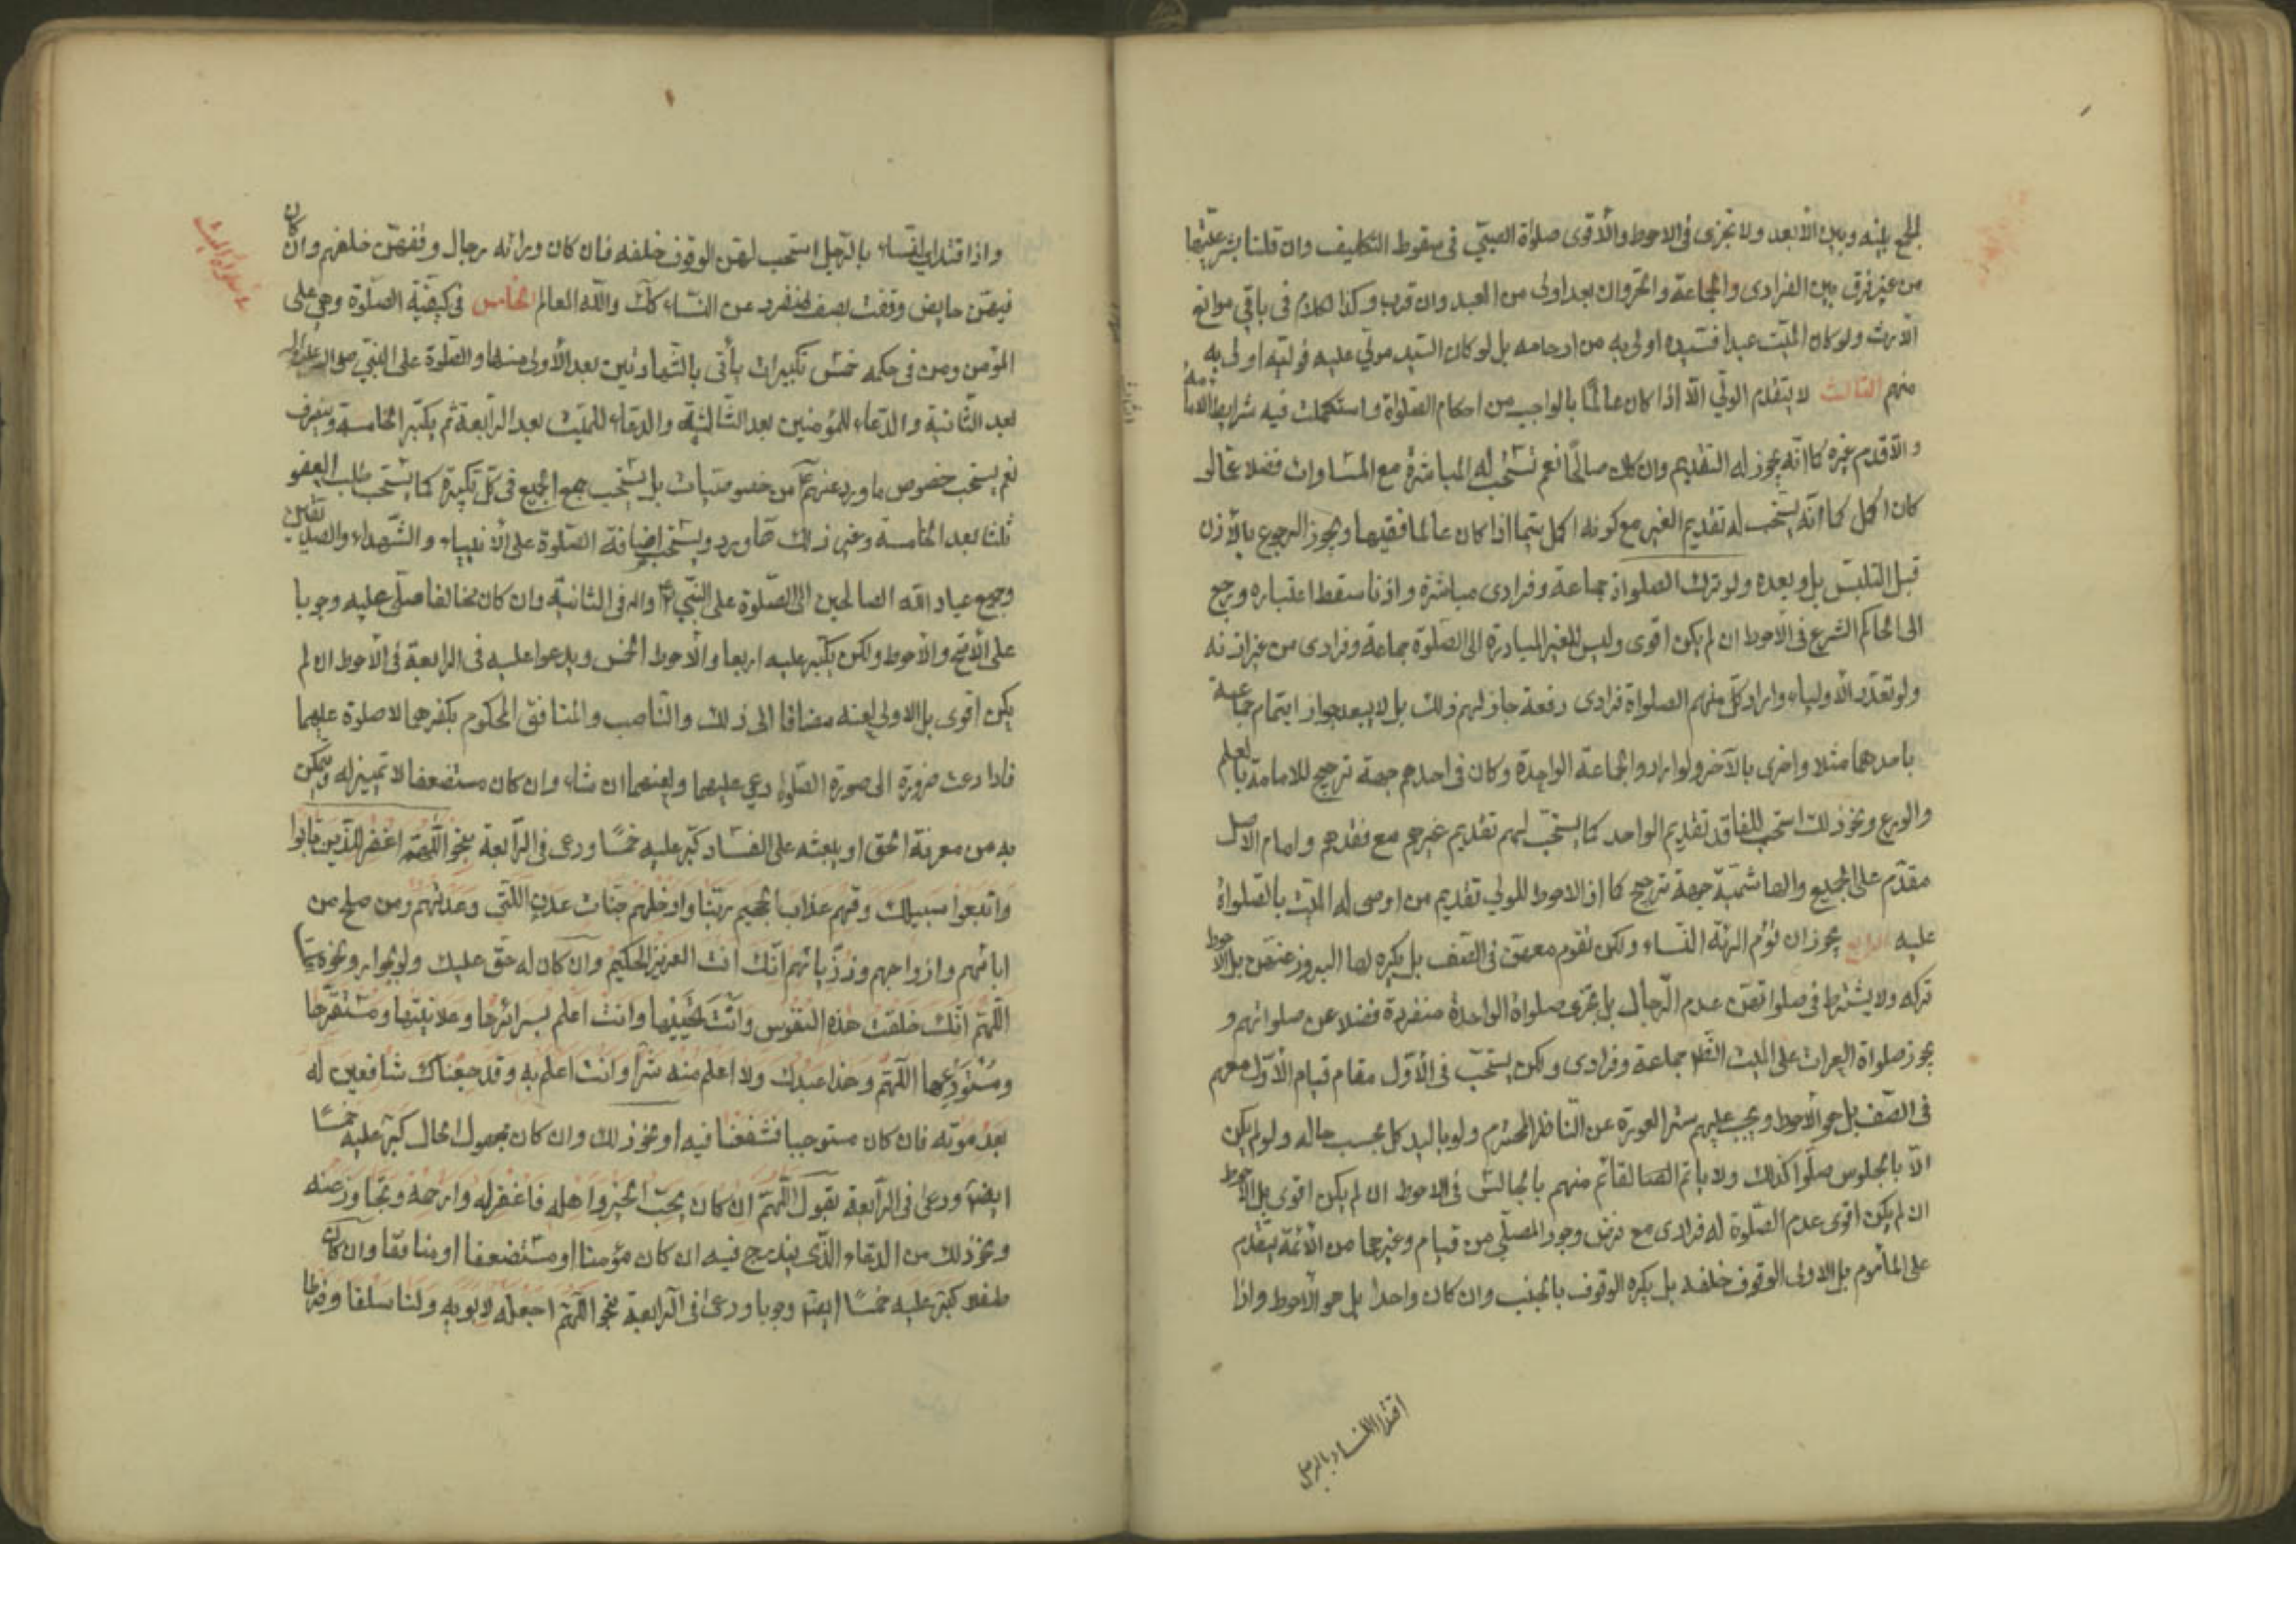 الجمع بينه وبين الأبعد ولا تجزى فى الاحوط والأقوى صلوة الصبىّ فى سقوط التكليف وان قلنا بشرعيّتها
من غير فرق بين الفرادى والجماعة والحر وان بعد اولى من العبد وان قرب وكذا الكلام فى باقى موانع
الأرث ولو كان الميّت عبدا فسيّده اولى به من ارحامه بل لو كان السّيد مولّى عليه فوليّه اولى به
منهم الثالث لا يتقدّم الولّى الّا اذا كان عالمًا بالواجب من احكام الصّلواة واستكملت فيه شرايط الامامة
والّا قدم غيره كما انّه يجوز له التقديم وان كان صالحًا نعم تستحبّ له المباشرة مع المساوات فضلا عمّا لو
كان اكمل كما انّه يستحب له تقديم الغير مع كونه اكمل سيّما اذا كان عالما فقيها ويجوز الرجوع بالأذن
قبل التلبّس بل وبعده ولو ترك الصلواة جماعة وفرادى مباشرة واذنا سقط اعتباره ورجع
الى الحاكم الشرع فى الأحوط ان لم يكن اقوى وليس للغير المبادرة الى الصّلوة جماعة وفرادى من غير اذنه
ولو تعدّد الأولياء واراد كلّ منهم الصلواة فرادى دفعة جاز لهم ذلك بل لا يبعد جواز ايتمام جماعة
باحدهما مثلا واخرى بالآخر ولو ارادوا الجماعة الواحدة وكان فى احدهم جهة ترجيح للامامة بالعلم
والورع ونحو ذلك استحب للفاقد تقديم الواحد كما يستحبّ لهم تقديم غيرهم مع فقدهم وامام الأصل
مقدّم على الجميع والهاشميّة جهة ترجيح كما ان الاحوط للولي تقديم من اوصى له الميّت بالصّلواة
عليه الرابع يجوز ان تؤم المرئة النّساء ولكن تقوم معهنّ فى الصّف بل يكره لها البروز عنهنّ بل الأحوط
تركه ولا يشترط فى صلواتهنّ عدم الرّجال بل تجزى صلواة الواحدة منفردة فضلا عن صلواتهم و
يجوز صلواة العرات على الميت جماعة وفرادى ولكن يستحبّ فى الأوّل مقام قيام الأوّل معهم
فى الصّف بل هو الأحوط ويجب عليهم ستر العورة عن النّاظر المحترم ولو باليد كل بحسب حاله ولو لم يكن
الّا بالجلوس صلّوا كذلك ولا ياتمّ القائم منهم بالجالس فى الاحوط ان لم يكن اقوى بل الأحوط
ان لم يكن اقوى عدم الصّلوة له فرادى مع فرض وجود المصلّى من قيام وغيرها من الأئمّة يتقدّم
على المأموم بل الاولى الوقوف خلفه بل يكره الوقوف بالجنب وان كان واحدا بل هو الأحوط واذا
اقتدا النساء بالرجل
واذا اقتدى النّساء بالرّجل استحب لهنّ الوقوف خلفه فان كان ورائه رجال وقفهنّ خلفهم وان كان
فيهنّ حايض وقفت بصف منفرد عن النّساء كلّ والله العالم الخامس فى كيفيّة الصّلوة وهى على
المؤمن ومن فى حكمه خمس تكبيرات يأتى بالشّهادتين بعد الأولى منها والصّلوة على النبىّ صلى الله عليه واله
بعد الثّانية والدّعاء للمؤمنين بعد الثّالثة والدعاء للميّت بعد الرّابعة ثم يكبّر الخامسة وينصرف
نعم يستحب خصوص ما ورد عنهم من خصوصيّات بل يستحب جمع الجميع فى كلّ تكبيرة كما يستحب طلب العفو
ثلثا بعد الخامسة وغير ذلك ممّا ورد ويستحب اضافة الصّلوة على الأنبياء والشّهداء والصدّيقين
وجميع عباد الله الصالحين الى الصّلوة على النّبي واله فى الثانية وان كان مخالفا صلّى عليه وجوبا
على الأصح والأحوط ولكن يكبّر عليه اربعا والأحوط الخمس ويدعوا عليه فى الرابعة فى الأحوط ان لم
يكن اقوى بل الاولى لعنه مضافا الى ذلك والنّاصب والمنافق المحكوم بكفرهما لا صلوة عليهما
فاذا دعت ضرورة الى صورة الصّلواة دعى عليهما ولعنهما ان شاء وان كان مستضعفا لا تميز له يتمكن
به من معرفة الحق او يبعثه على الفساد كبّر عليه خمسًا ودعى فى الرّابعة بنحو اللّهمّ اغفر للّذين تابوا
واتّبعوا سبيلك وقهم عذاب الجحيم ربّنا وادخلهم جنّات عدن الّتى وعدتهم ومن صلح من
ابائهم وازواجهم وذرّيّاتهم انّك انت العزيز الحكيم وان كان له حقّ عليك ولو بجوار ونحوه
اللّهمّ انّك خلقت هذه النفوس وانت تحييها وانت اعلم بسرائرها وعلانيتها ومستقرّها
ومستودعها اللّهمّ وهذا عبدك ولا اعلم منه شرّا وانت اعلم به وقد جئناك شافعين له
بعد موته فان كان مستوجبا فشفّعنا فيه او نحو ذلك وان كان مجهول الحال كبّر عليه خمسًا
ايضا ودعى فى الرّابعة بقول اللّهمّ ان كان يحبّ الخير واهله فاغفر له وارحمه وتجاوز عنه
ونحو ذلك من الدعاء الّذى يندرج فيه ان كان مؤمنا او مستضعفا او منافقا وان كان
طفلا كبّر عليه خمسًا ايضا وجوبا ودعى فى الرّابعة بنحو اللّهمّ اجعله لابويه ولنا سلفا وفرطا